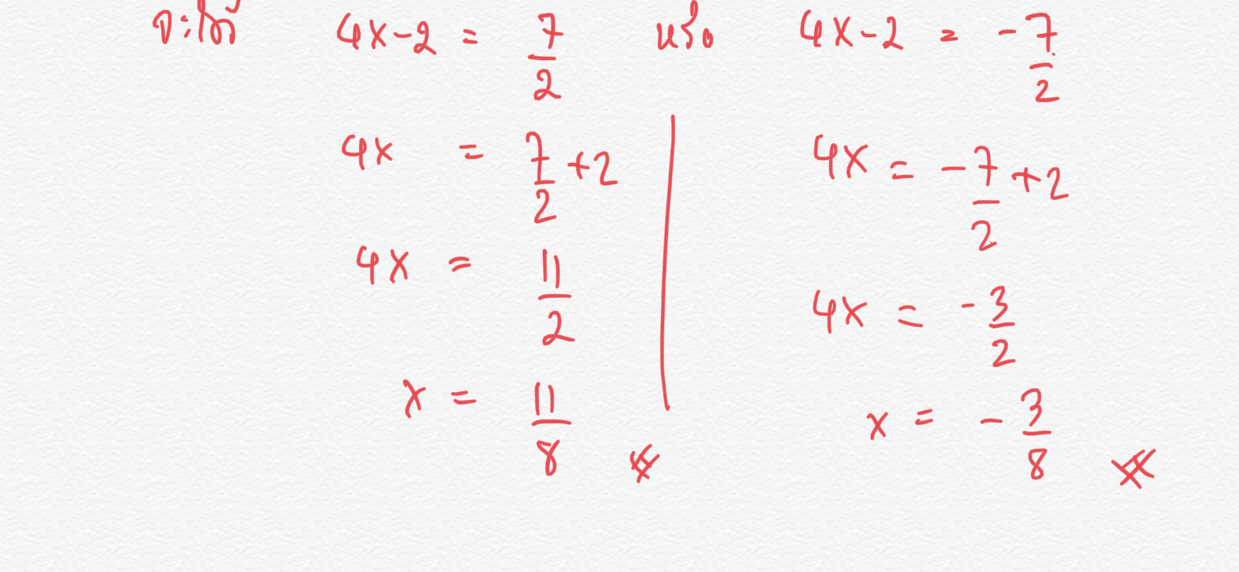 จะได้ 4x-2 = 7/2 หรือ 4x-2 = -7/2
4x = 7/2 +2
4x = 11/2
x = 11/8 #
4x = -7/2 +2
4x = -3/2
x = -3/8 #